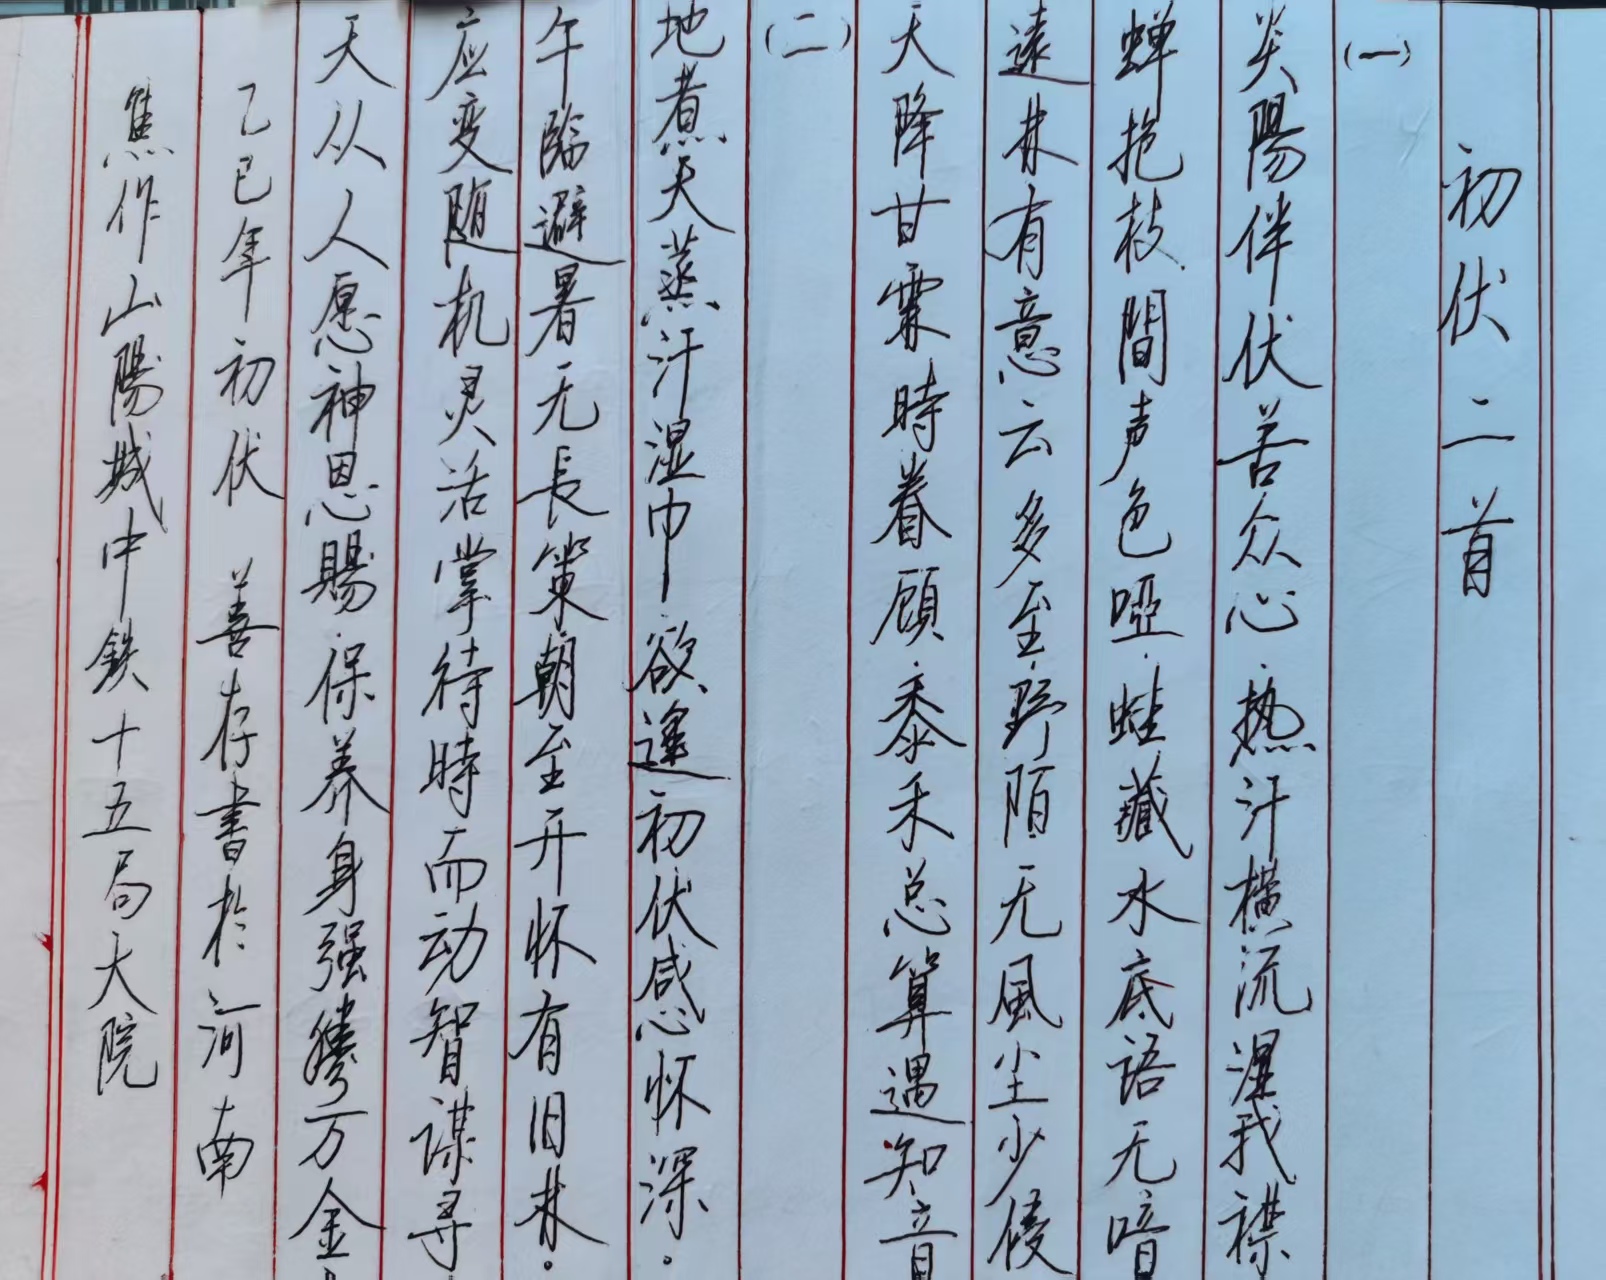 初伏二首
（一）
炎陽伴伏苦众心热汗横流湿我襟
蝉抱枝間声色哑.蛙藏水底语无喑
遠林有意云多至.野陌无風尘少侵
天降甘霖時眷顾.黍禾总算遇知音
（二）
地煮天蒸汗湿巾.欲逢初伏感怀深.
午臨避暑无長策.朝至开怀有旧林.
应变随机灵活掌待時而动智谋寻
天从人愿神恩賜.保养身强勝万金
乙巳年初伏 善存書於河南
焦作山陽城中鉄十五局大院